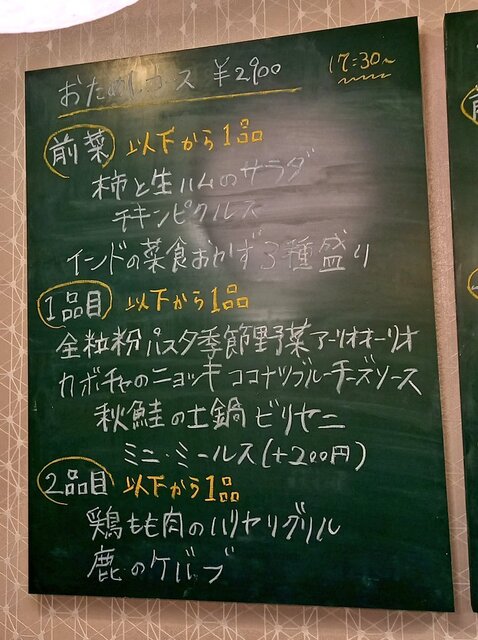 おためしコース ¥2900
17:30〜
前菜 以下から1品
柿と生ハムのサラダ
チキンピクルス
インドの菜食おかず3種盛り
1品目 以下から1品
全粒粉パスタ季節野菜アーリオオーリオ
カボチャのニョッキ ココナツブルーチーズソース
秋鮭の土鍋ビリヤニ
ミニ・ミールス(+200円)
2品目 以下から1品
鶏もも肉のハリヤリグリル
鹿のケバブ